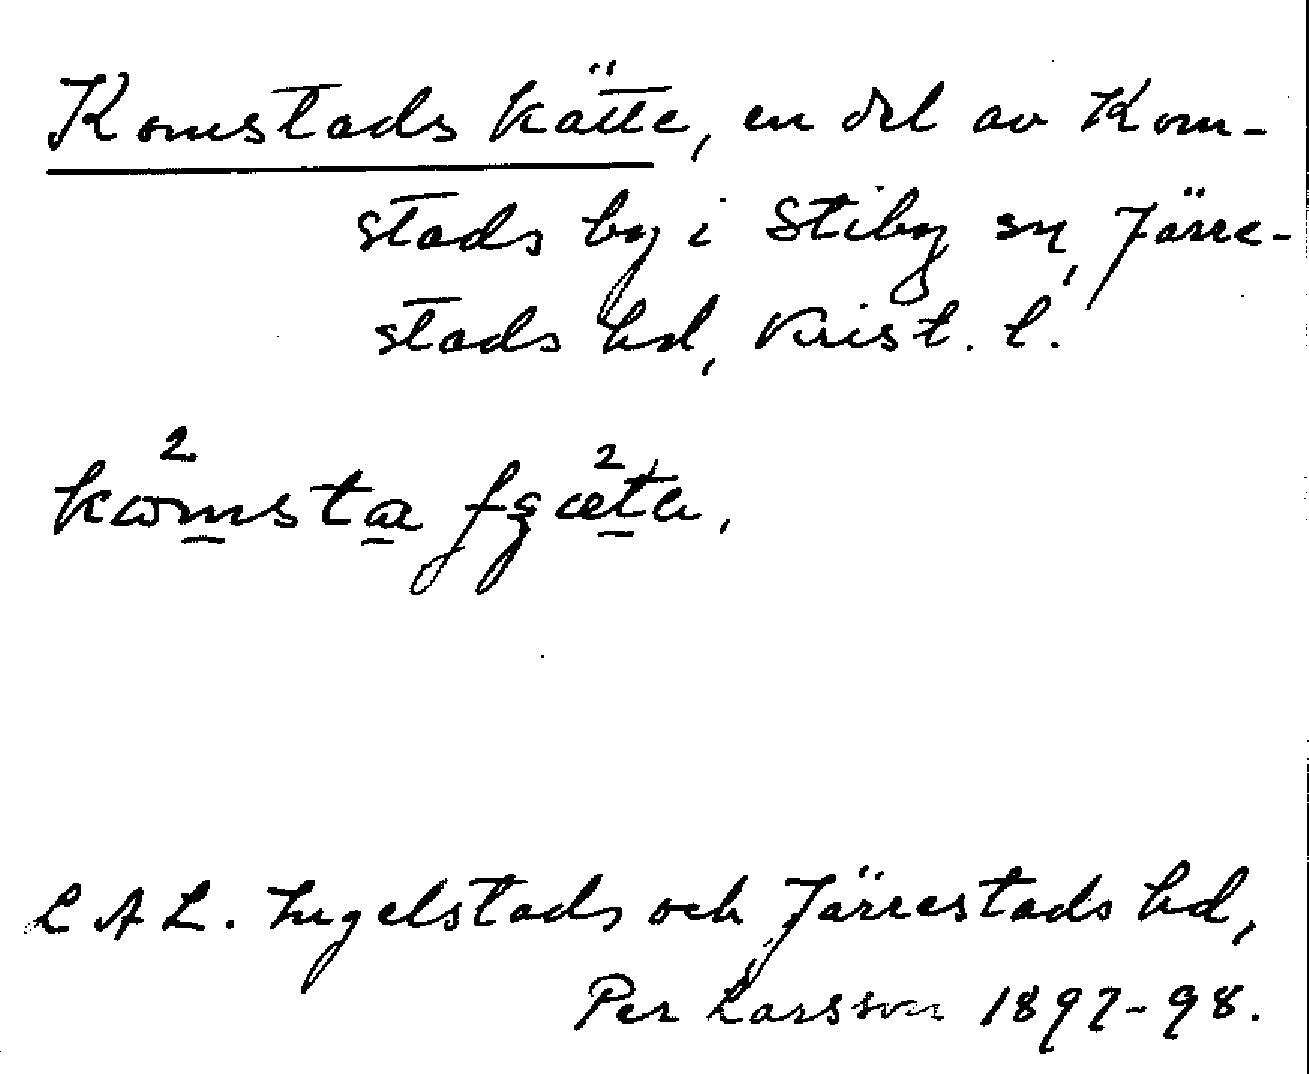 Komstads kätte, en del av Kom-
stads by i Stiby sn, Järre-
stads hd, Krist. l.
L A L. Ingelstads och Järrestads hd,
Per Larsson 1897-98.